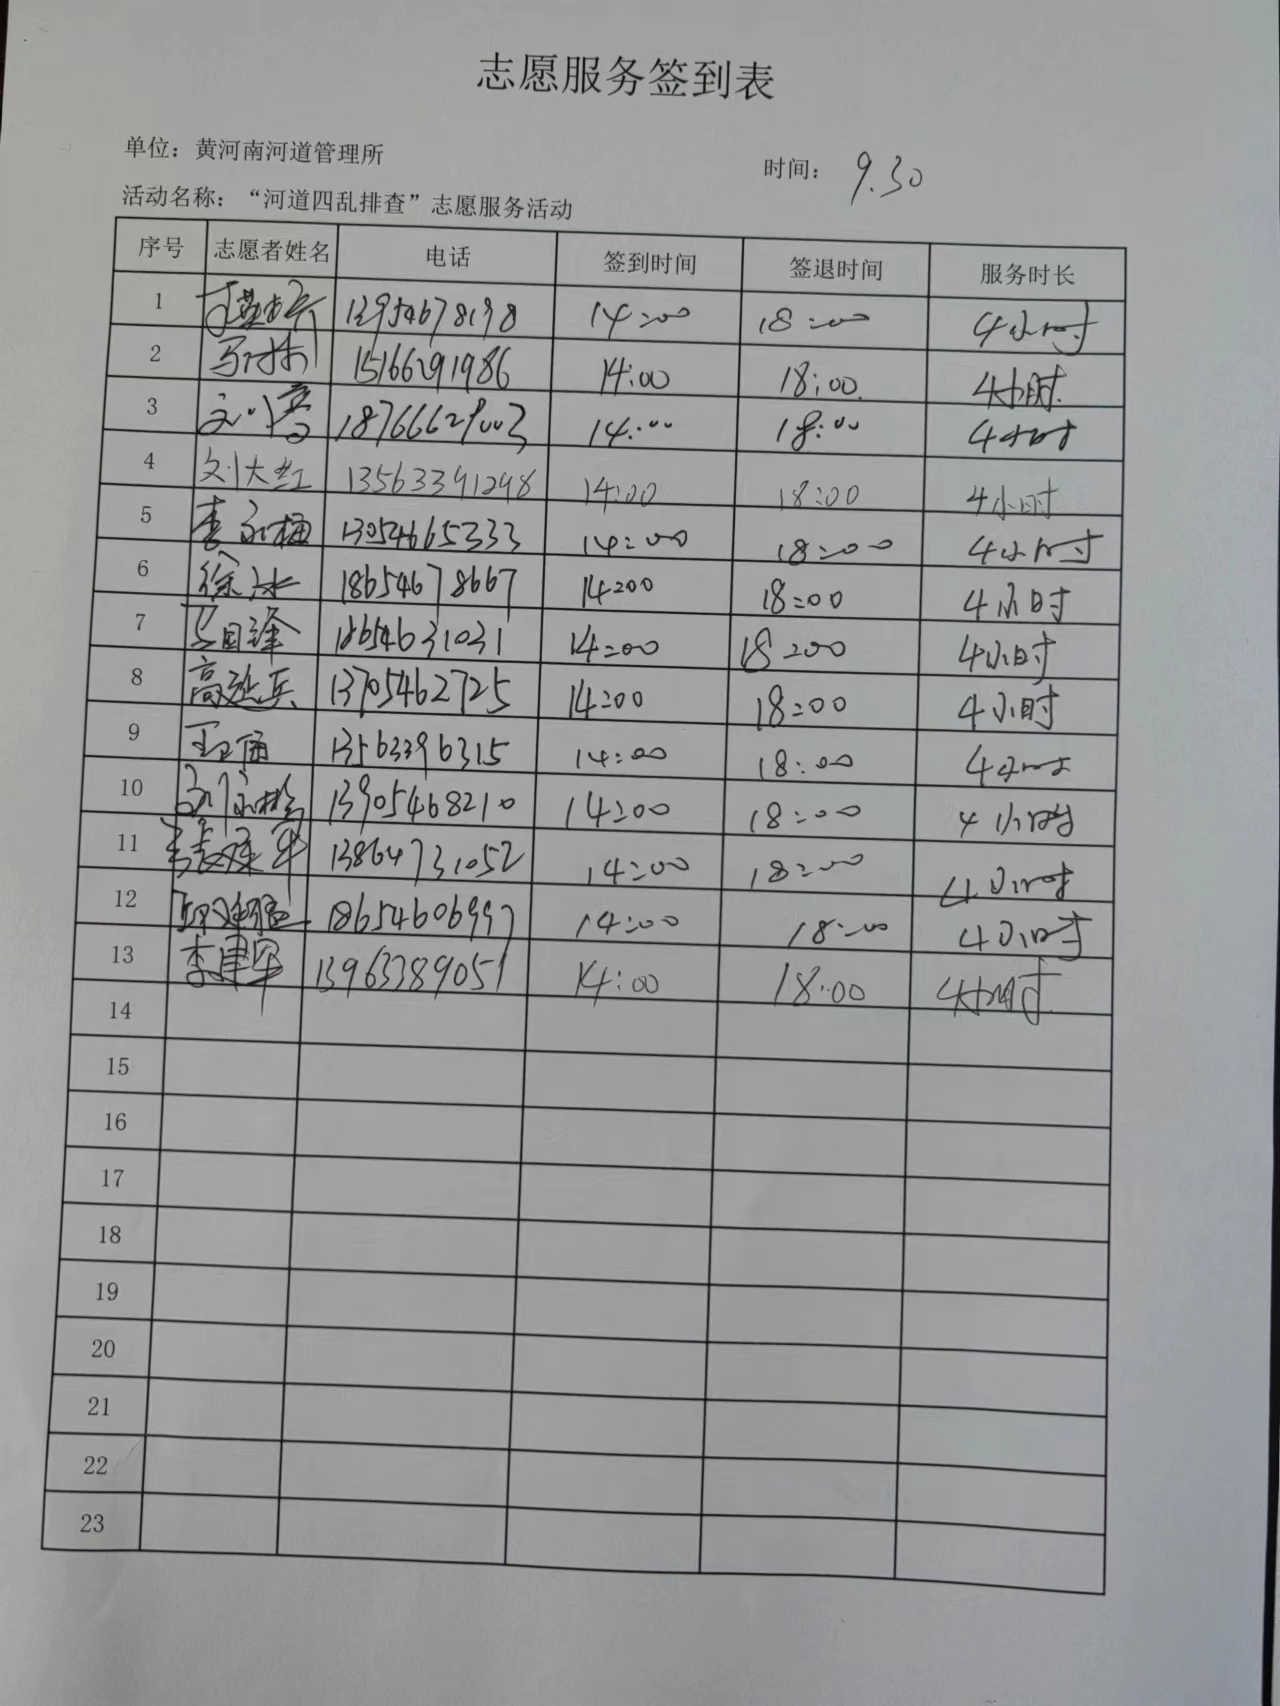 志愿服务签到表
单位：黄河南河道管理所
时间： 9.30
活动名称：“河道四乱排查”志愿服务活动
序号 志愿者姓名 电话 签到时间 签退时间 服务时长
1 14:00 18:00 4小时
2 15166291986 14:00 18:00 4小时
3 18766629003 14:00 18:00 4小时
4 刘大红 13563391298 14:00 18:00 4小时
5 李永梅 13054665333 14:00 18:00 4小时
6 徐冰 18654678667 14:00 18:00 4小时
7 18654631031 14:00 18:00 4小时
8 高延兵 13705462725 14:00 18:00 4小时
9 13563396315 14:00 18:00 4小时
10 13905468210 14:00 18:00 4小时
11 13864731052 14:00 18:00 4小时
12 18654606997 14:00 18:00 4小时
13 李建军 13963389051 14:00 18:00 4小时
14
15
16
17
18
19
20
21
22
23